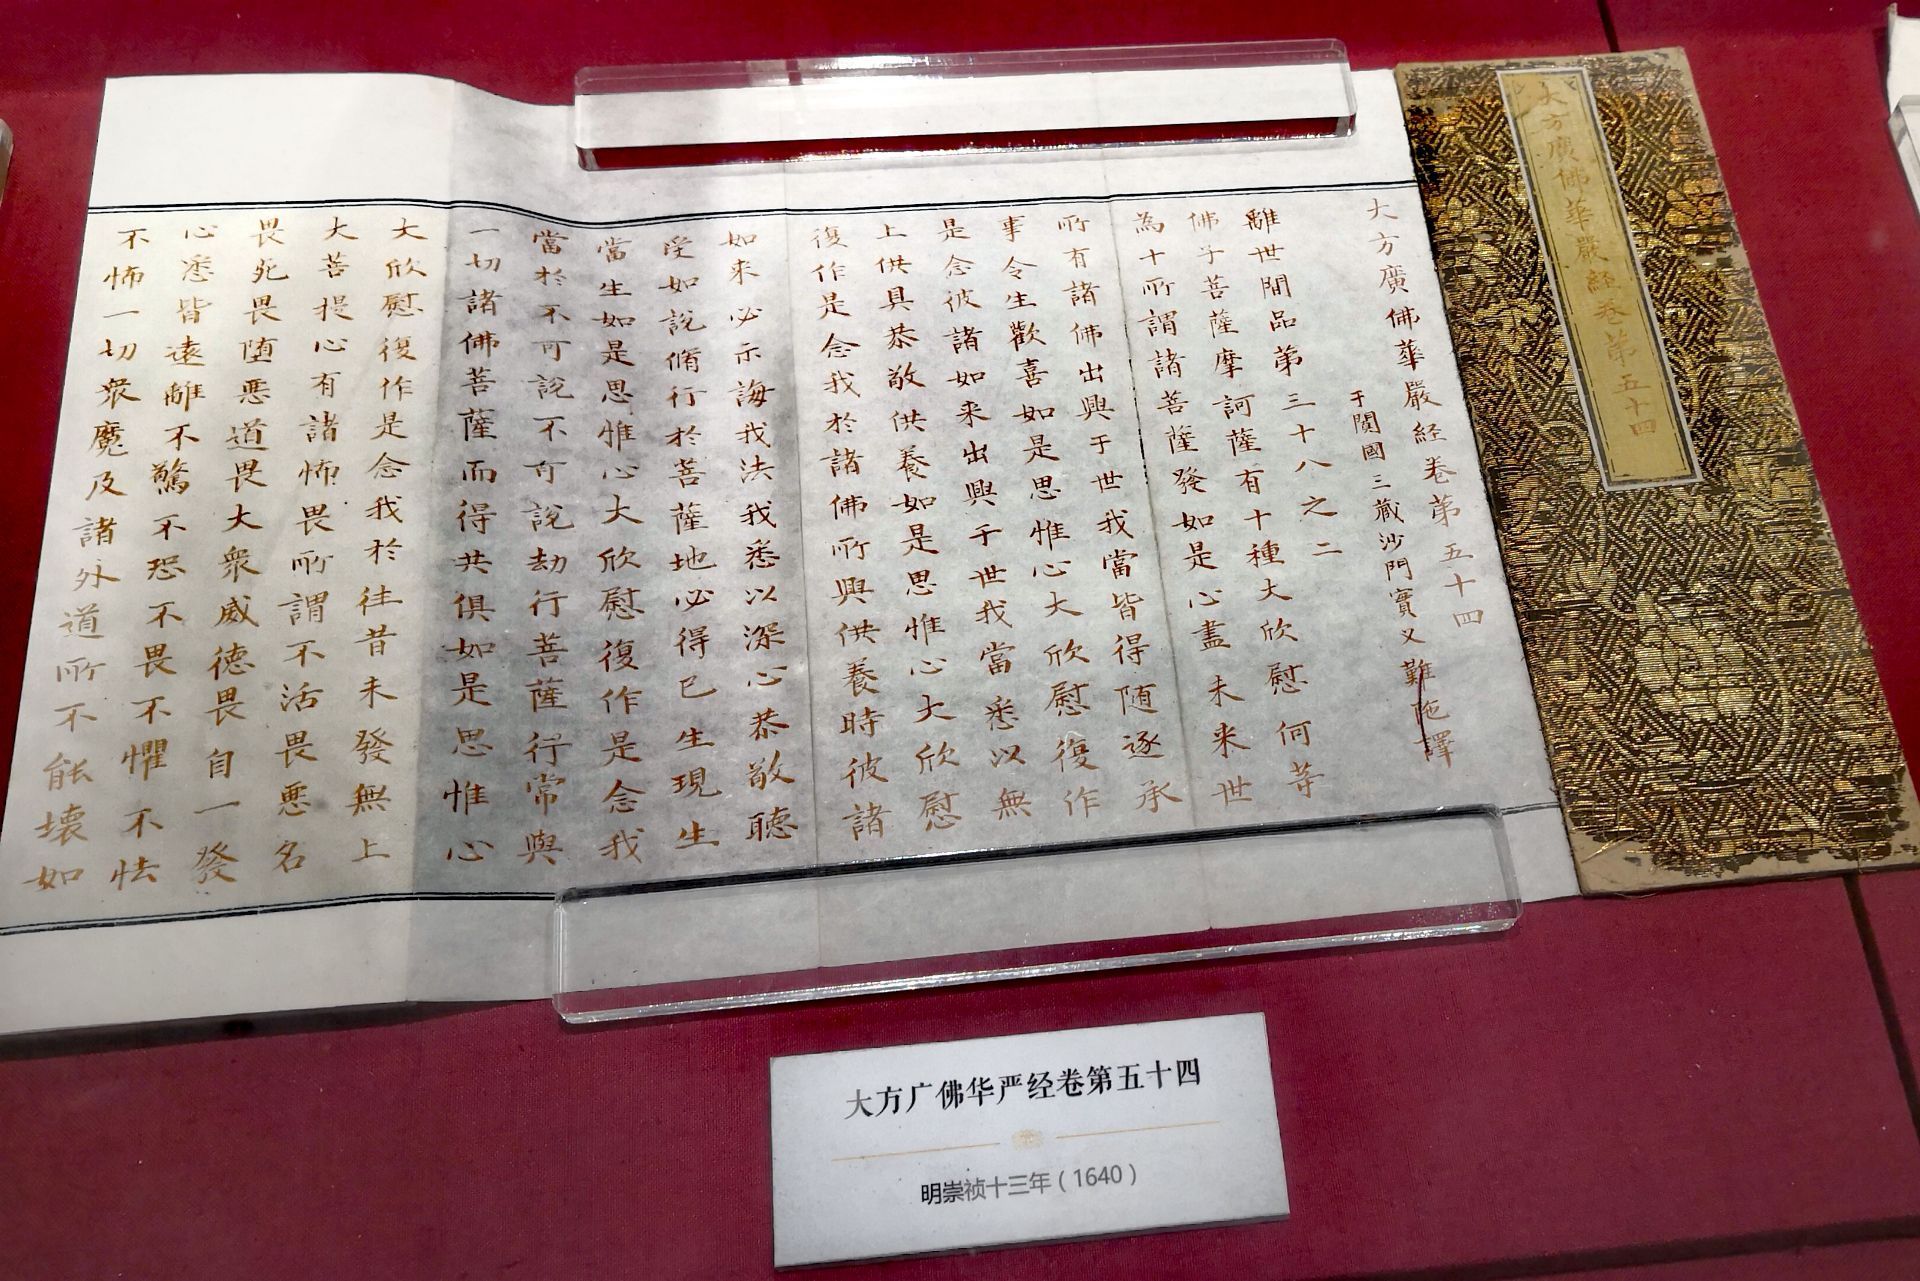 大方廣佛華嚴経卷第五十四
大方廣佛華嚴経卷第五十四
于闐國三藏沙門實叉難陁譯
離世間品第三十八之二
佛子菩薩摩訶薩有十種大欣慰何等
為十所謂諸菩薩發如是心盡未来世
所有諸佛出興于世我當皆得随逐承
事令生歡喜如是思惟心大欣慰復作
是念彼諸如来出興于世我當悉以無
上供具恭敬供養如是思惟心大欣慰
復作是念我於諸佛所興供養時彼諸
如来必示誨我法我悉以深心恭敬聽
受如說脩行於菩薩地必得已生現生
當生如是思惟心大欣慰復作是念我
當於不可說不可說劫行菩薩行常與
一切諸佛菩薩而得共俱如是思惟心
大欣慰復作是念我於往昔未發無上
大菩提心有諸怖畏所謂不活畏惡名
畏死畏堕惡道畏大衆威德畏自一發
心悉皆遠離不驚不恐不畏不懼不怯
不怖一切衆魔及諸外道所不能壊如
大方广佛华严经卷第五十四
明崇祯十三年（1640）